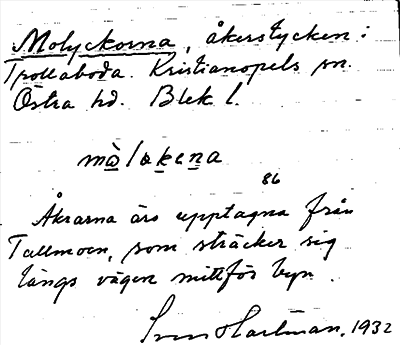 Molyckorna, åkerstycken i
Trollaboda. Kristianopels sn.
Östra hd. Blek l.
må̀lakena
86
Åkrarna äro upptagna från
Tallmoen, som sträcker sig
längs vägen mittför byn.
Sven Hartman, 1932